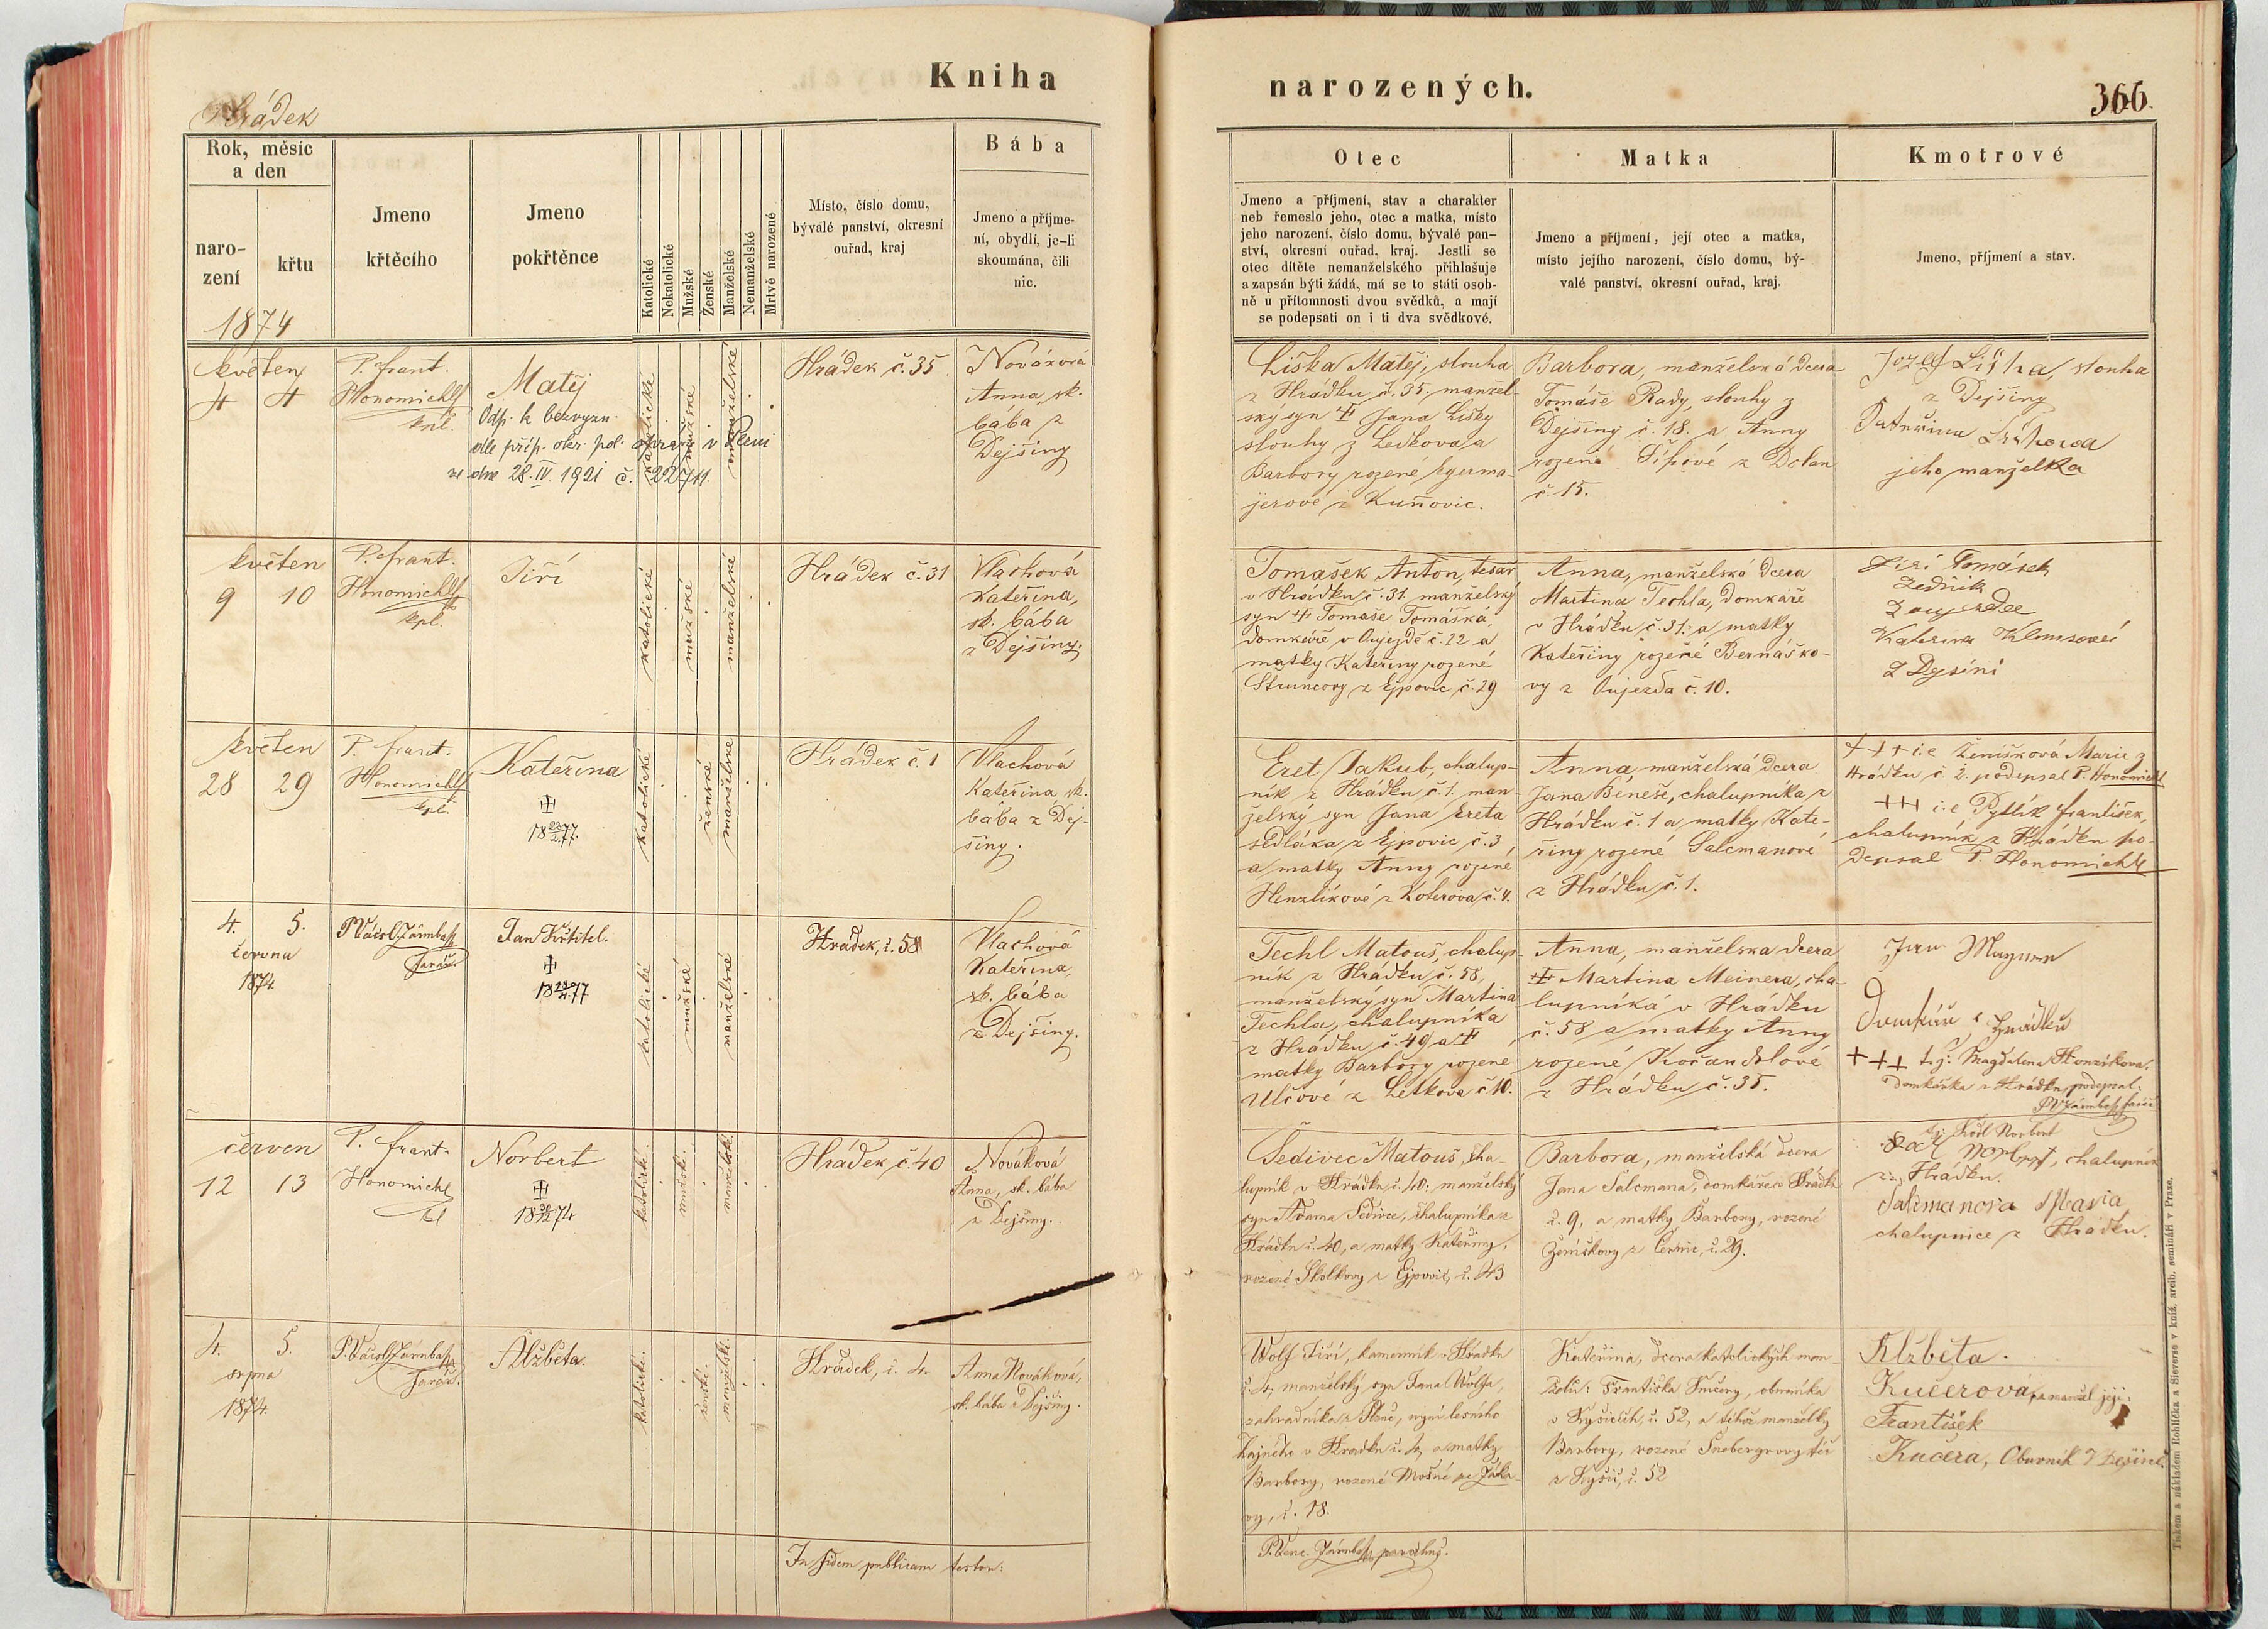 Kniha
Hrádek
Rok, měsíc
a den
naro-
zení
křtu
1874
Jmeno
křtěcího
Jmeno
pokřtěnce
Katolické
Nekatolické
Mužské
Ženské
Manželské
Nemanželské
Mrtvě narozené
Místo, číslo domu,
bývalé panství, okresní
ouřad, kraj
Bába
Jmeno a příjme-
ní, obydlí, je-li
skoumána, čili
nic.
květen
4 4
P. frant.
Honomichl
kpl.
Matěj
Odp. k bezvyzn.
dle příp. okr. pol. správy v Plzni
ze dne 28. IV. 1921 č. 22711.
katolické
mužské
manželské
Hrádek č. 35
Nováková
Anna, sk.
bába z
Dejšiny
květen
9 10
P. frant.
Honomichl
kpl.
Jiří
katolické
mužské
manželské
Hrádek č. 31
Vlachová
Kateřina,
sk. bába
z Dejšiny.
květen
28 29
P. frant.
Honomichl
kpl.
Kateřina
katolické
ženské
manželské
Hrádek č. 1
Vlachová
Kateřina sk.
bába z Dej-
šiny.
4. 5.
června
1874.
farář.
Jan Křtitel.
katolické
mužské
manželské
Hrádek, č. 58
Vlachová
Kateřina,
sk. bába
z Dejšiny.
červen
12 13
P. frant.
Honomichl
Norbert
katolické.
mužské.
manželské.
Hrádek č. 40
Nováková
Anna, sk. bába
z Dejšiny.
4. 5.
srpna
1874.
farář.
Alžběta.
katolické.
ženské.
manželské.
Hrádek, č. 4.
Anna Nováková,
sk. bába z Dejšiny.
In fidem publicam testor:
narozených.
366.
Otec
Jmeno a příjmení, stav a charakter
neb řemeslo jeho, otec a matka, místo
jeho narození, číslo domu, bývalé pan-
ství, okresní ouřad, kraj. Jestli se
otec dítěte nemanželského přihlašuje
a zapsán býti žádá, má se to státi osob-
ně u přítomnosti dvou svědků, a mají
se podepsati on i ti dva svědkové.
Matka
Jmeno a příjmení, její otec a matka,
místo jejího narození, číslo domu, bý-
valé panství, okresní ouřad, kraj.
Kmotrové
Jmeno, příjmení a stav.
Liška Matěj, slouha
z Hrádku č. 35, manžel-
ský syn † Jana Lišky
slouhy z Letkova a
Barbory rozené Egerma-
jerové z Kunovic.
Barbora, manželská dcera
Tomáše Rady, slouhy z
Dejšiny č. 18. a Anny
rozené Šípové z Dolan
č. 15.
Jozef Liška, slouha
z Dejšiny
Kateřina Lišková
jeho manželka
Tomášek Anton, tesař
v Hrádku č. 31. manželský
syn † Tomáše Tomáška,
domkáře v Oujezdě č. 22 a
matky Kateřiny rozené
Štruncovy z Ejpovic č. 29
Anna, manželská dcera
Martina Techla, domkáře
v Hrádku č. 31. a matky
Kateřiny rozené Bernáško-
vy z Oujezda č. 10.
Jiří Tomášek
Zedník
Z Dejšini
Eret Jakub, chalup-
ník z Hrádku č. 1. man-
želský syn Jana Ereta
sedláka z Ejpovic č. 3
a matky Anny rozené
Henzlíkové z Koterova č. 4.
Anna manželská dcera
Jana Beneše, chalupníka z
Hrádku č. 1 a matky Kate-
řiny rozené Salcmanové
z Hrádku č. 1.
+++ i. e. Ženíšková Marie z
Hrádku č. 2. podepsal P. Honomichl
+++ i. e. Pytlík františek,
chalupník z Hrádku po-
depsal P. Honomichl
Techl Matouš, chalup-
ník z Hrádku č. 58,
manželský syn Martina
Techla, chalupníka
z Hrádku č. 49 a †
matky Barbory rozené
Ulčové z Letkova č 10.
Anna, manželská dcera
† Martina Meinera, cha-
lupníka v Hrádku
č. 58 a matky Anny
rozené Kočandrlové
z Hrádku č. 35.
+++ t.j: Magdalena Honzíková,
domkářka z Hrádku, podepsal:
Šedivec Matouš, cha-
lupník v Hrádku č. 40. manželský
syn Adama Šedivce, chalupníka z
Hrádku č. 40, a matky Kateřiny,
rozené Školkovy z Ejpovic, č. 43
Barbora, manželská dcera
Jana Salcmana, domkáře v Hrádku
č. 9, a matky Barbory, rozené
Ženíškovy z Černic, č. 29.
Norbert, chalupník
z Hrádku.
Salzmanova Maria
chalupnice z Hrádku.
Wolf Jiří, kamenník v Hrádku
č. 4, manželský syn Jana Wolfa,
zahradníka z Plané, nyní lesního
hajného v Hrádku č. 4, a matky
Barbory, rozené Mošné ze Žáka-
vy, č. 18.
Kateřina, dcera katolických man-
želů: Františka Kučery, obuvníka
v Kyšicích, č. 52, a téhož manželky
Barbory, rozené Šnebergrovy též
z Kyšic, č. 52
Alžběta.
Kučerová, a manžel její:
František
Kučera, Obuvník z Dejšině.
Tiskem a nákladem Rohlíčka a Sieverse v kníž. arcib. semináři v Praze.